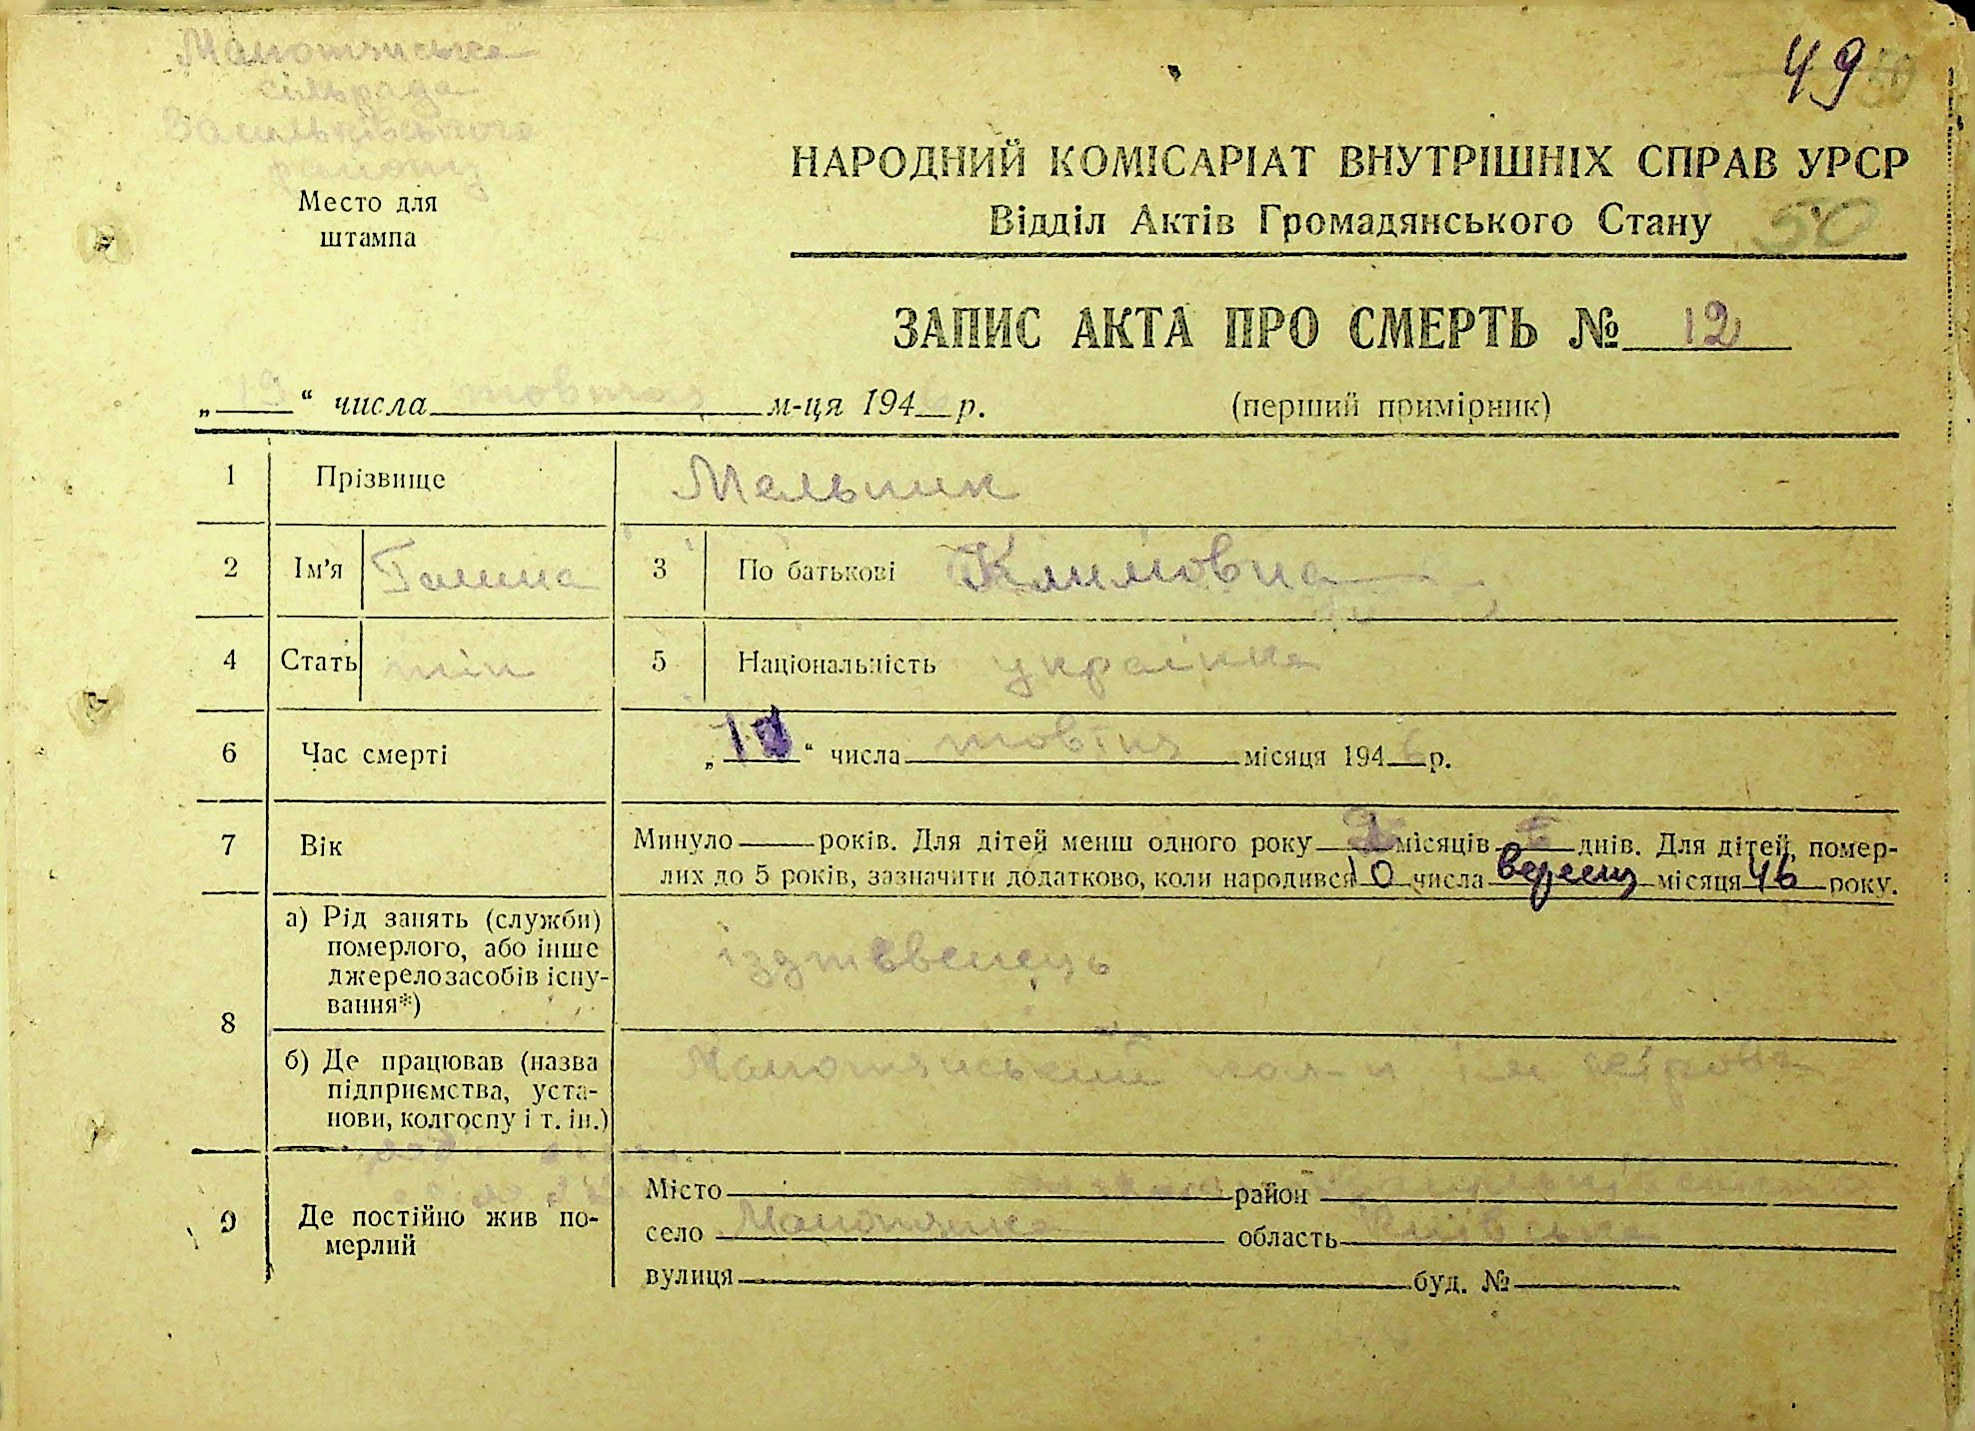 сільрада
Васильківського
району
49 50
Место для
штампа
НАРОДНИЙ КОМІСАРІАТ ВНУТРІШНІХ СПРАВ УРСР
Відділ Актів Громадянського Стану 50
ЗАПИС АКТА ПРО СМЕРТЬ № 12
„19“ числа жовтня м-ця 1946 р. (перший примірник)
1 Прізвище Мельник
2 Ім'я Галина 3 По батькові Климовна
4 Стать жін 5 Національність українка
6 Час смерті „ “ числа жовтня місяця 1946 р.
7 Вік Минуло років. Для дітей менш одного року місяців днів. Для дітей, помер-
лих до 5 років, зазначити додатково, коли народився 10 числа вересня місяця 46 року.
8 а) Рід занять (служби)
померлого, або інше
джерело засобів існу-
вання*)
іздтвенець
б) Де працював (назва
підприємства, уста-
нови, колгоспу і т. ін.)
кол-п ім Кірова
9 Де постійно жив по-
мерлий
Місто район
село область Київська
вулиця буд. №